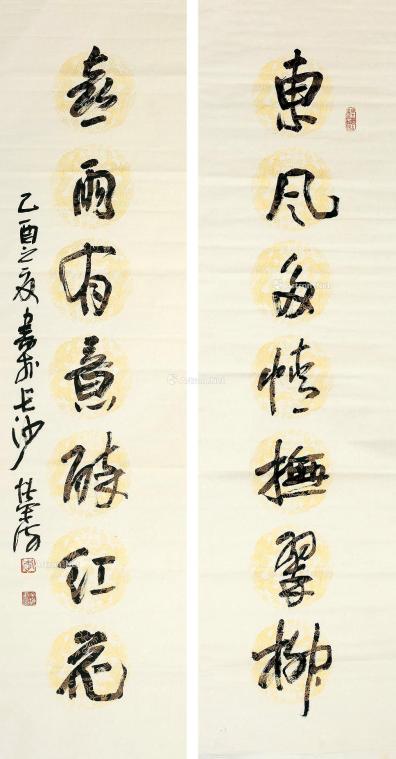 東风多情撫翠柳
喜雨有意醉红花
乙酉之夏书于长沙